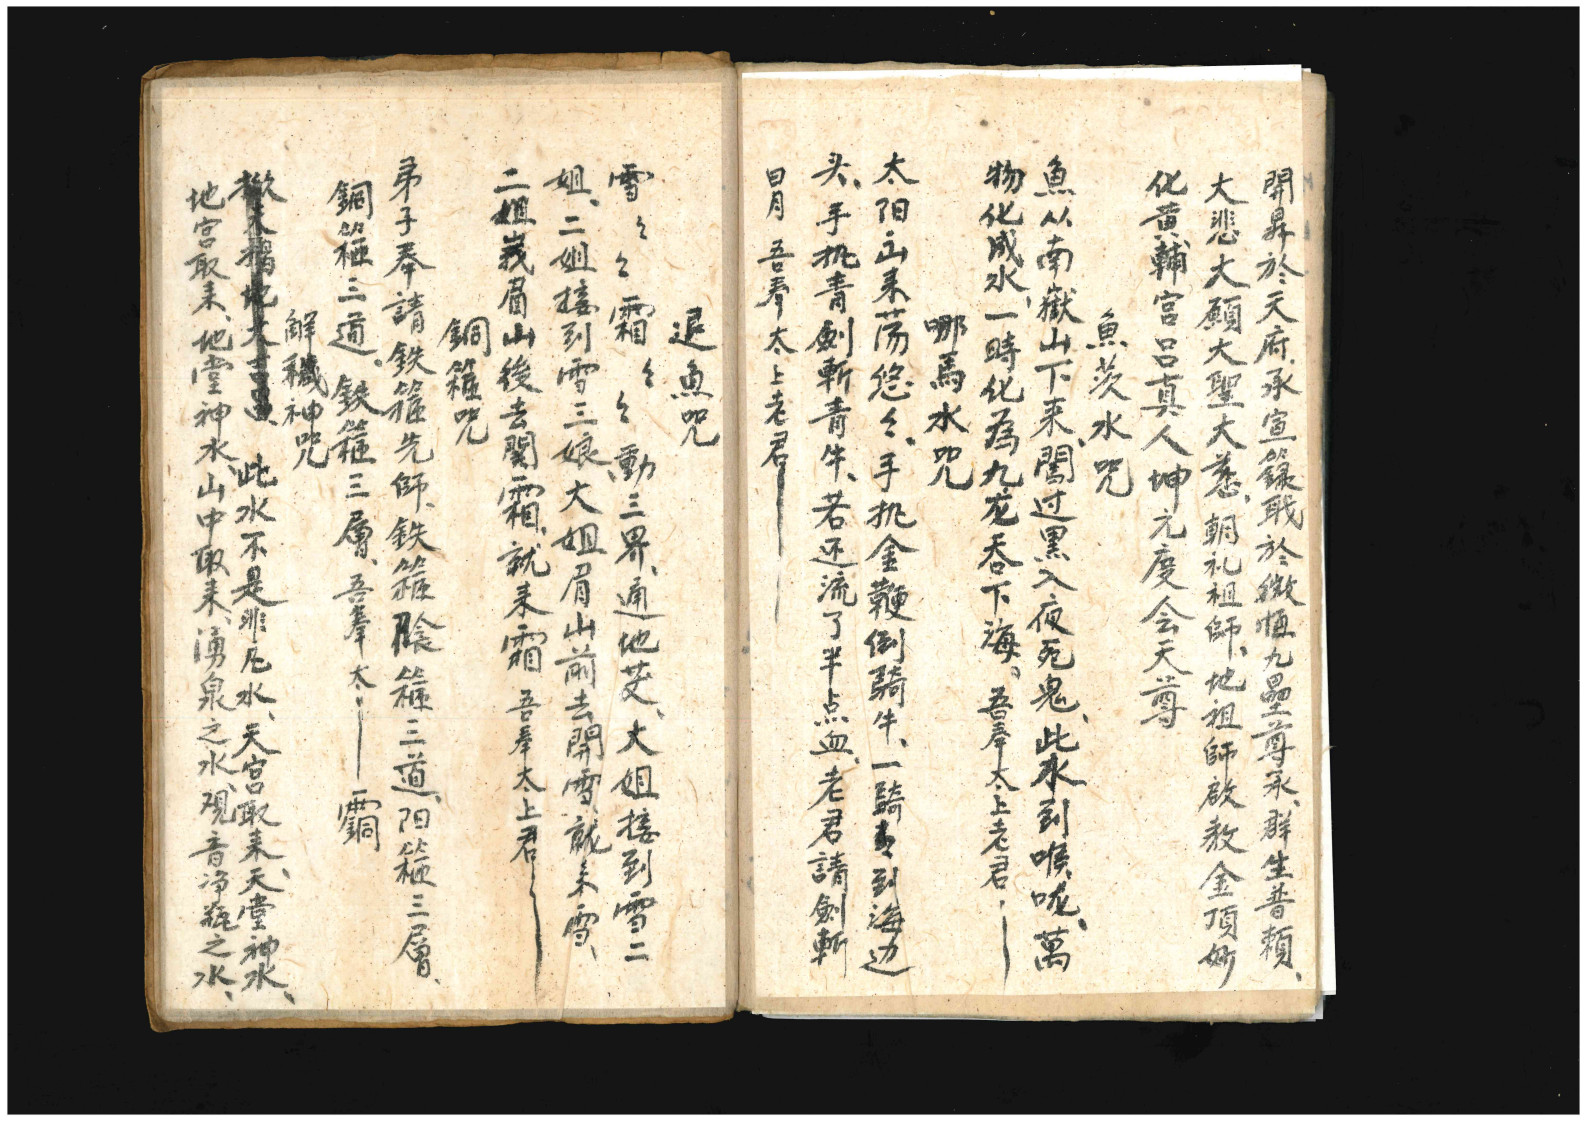 開昇於天府、承宣籙職於微恒九壘尊承、群生普賴、
大悲大願大聖大慈、朝礼祖師、地祖師啟教金頂妙
化黃輔宮呂真人坤元度会天尊
魚茨水咒
魚从南嶽山下来、闖过黑入夜死鬼、此水到喉咙、萬
物化成水、一時化為九龙吞下海。吾奉太上老君
哪馬水咒
太阳山来荡悠々、手执金鞭倒騎牛、一騎到海边
头、手执青劍斬青牛、若还流了半点血、老君請劍斬
吾奉太上老君
退魚咒
雪々々霜々々動三界、通地、大姐接到雪二
姐、二姐接到雪三娘大姐眉山前去開雪、就来雪、
二姐峩眉山後去開霜、就来霜 吾奉太上君
銅箍咒
弟子奉請鉄箍先師、鉄箍陰箍三道、阳箍三層、
銅箍三道、鉄箍三層、吾奉太
解穢神咒
此水不是非凡水、天宮取来天堂神水、
地宮取来、地堂神水、山中取来、湧泉之水、观音净瓶之水、